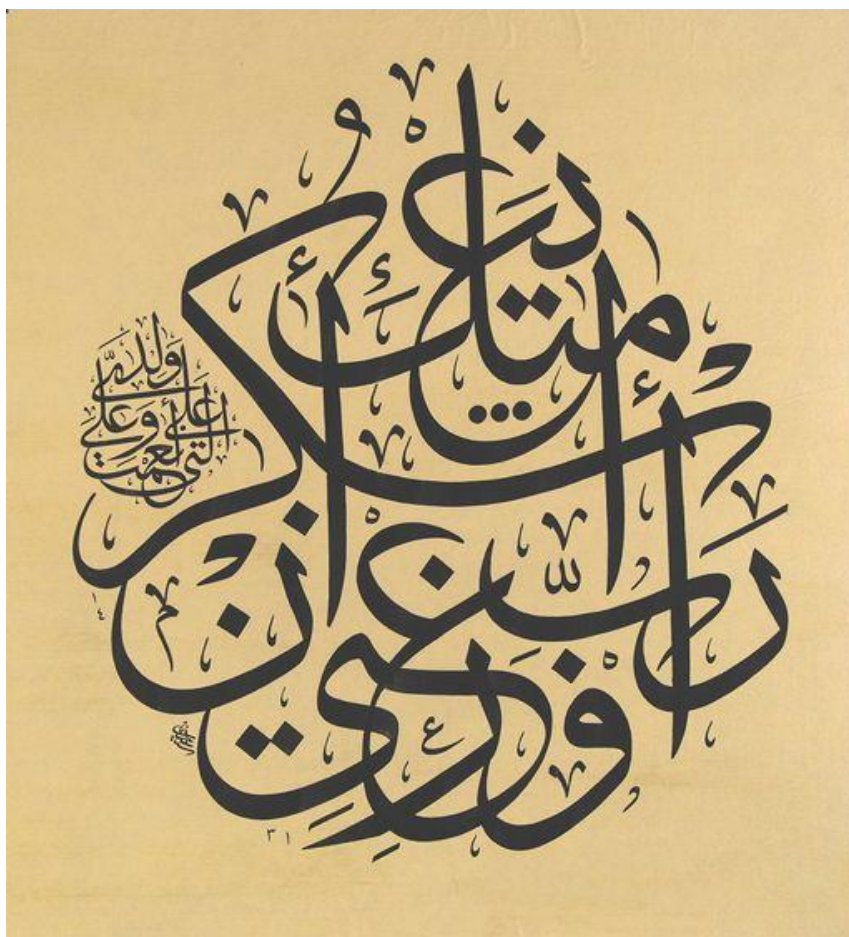 رَبِّ أَوْزِعْنِي أَنْ أَشْكُرَ نِعْمَتَكَ
الَّتِي أَنْعَمْتَ عَلَيَّ وَعَلَىٰ وَالِدَيَّ
١٤
٣١